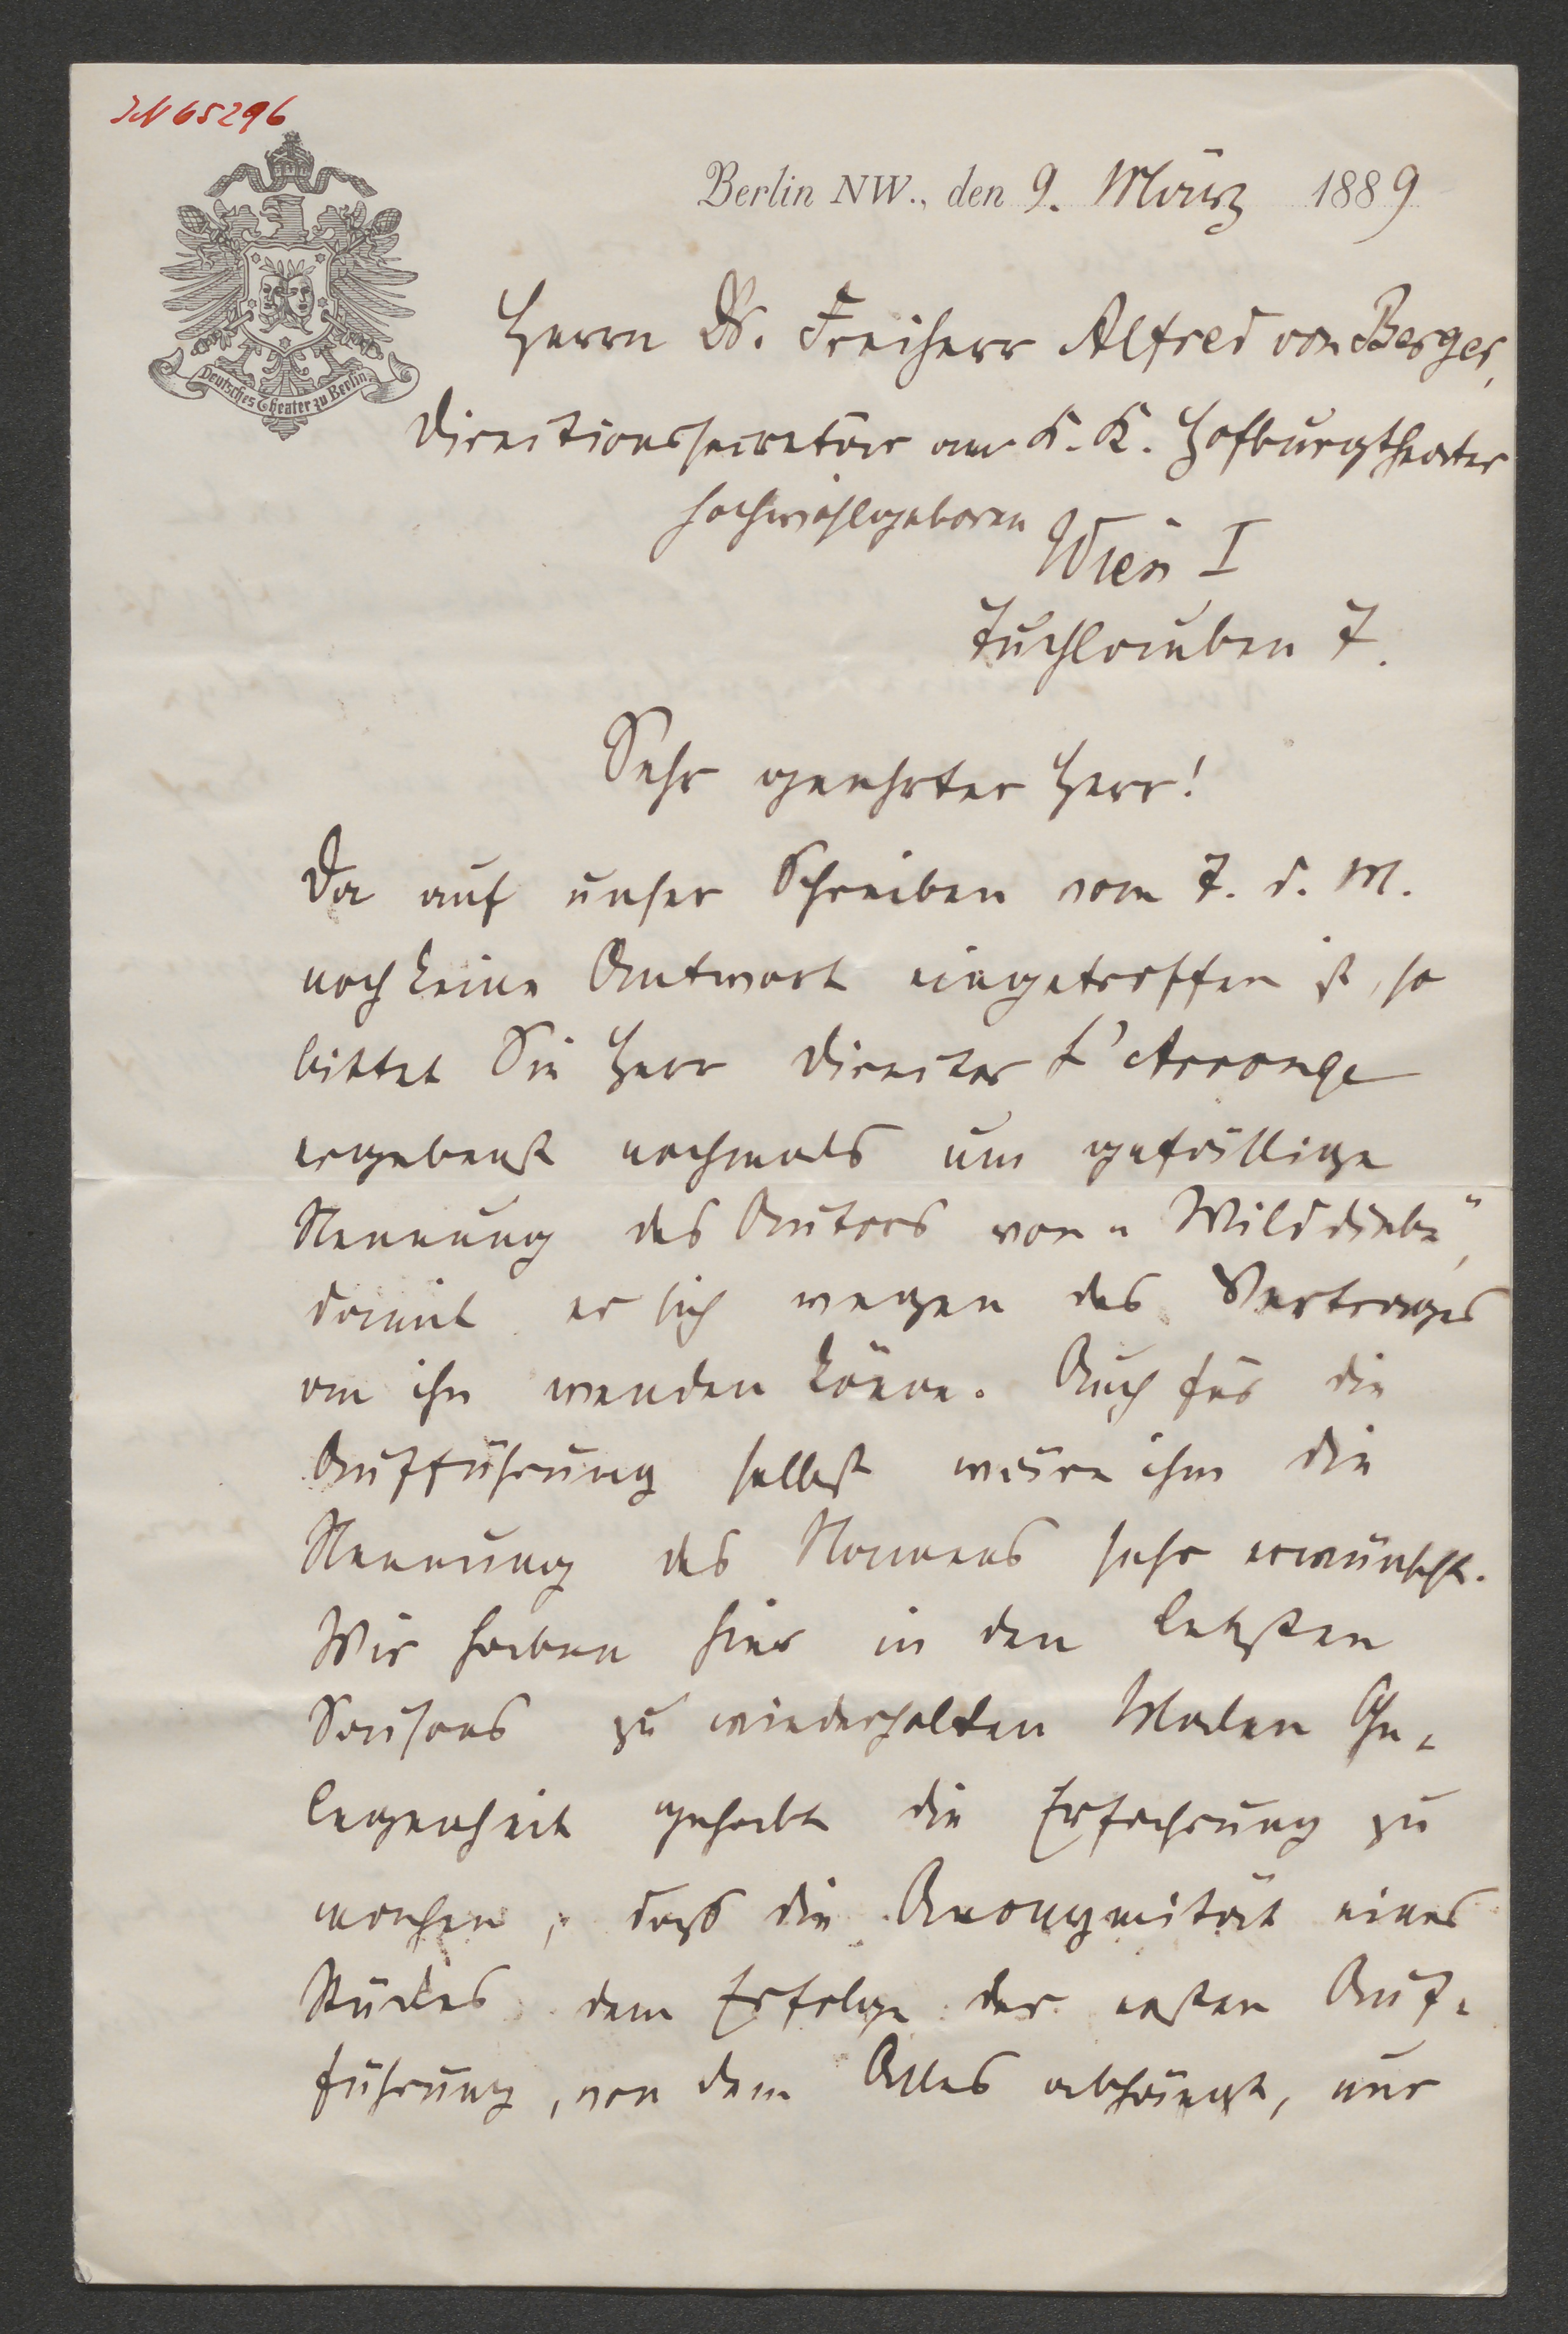 IN 65296
Deutsches Theater zu Berlin.
Berlin NW., den 9. März 1889
Herrn Dr. Freiherr Alfred von Berger,
Directionssecretär am K. K. Hofburgtheater
Hochwohlgeboren
Wien I
Tuchlauben 7.
Sehr geehrter Herr!
Da auf unser Schreiben vom 7. d. M.
noch keine Antwort eingetroffen ist, so
bittet Sie Herr Director L'Arronge
ergebenst nochmals um gefällige
Nennung des Autors von "Wilddiebe",
damit er sich wegen des Vertrages
an ihn wenden könne. Auch für die
Aufführung selbst wäre ihm die
Nennung des Namens sehr erwünscht.
Wir haben hier in den letzten
Saisons zu wiederholten Malen Ge-
legenheit gehabt die Erfahrung zu
machen, daß die Anonymität eines
Stückes dem Erfolge der ersten Auf-
führung, von dem Alles abhängt, nur